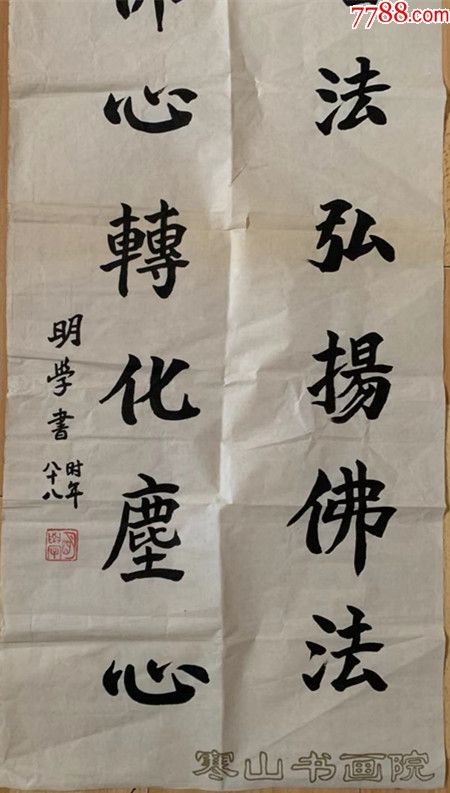 7788.com
法弘揚佛法
佛心轉化塵心
明學書
时年
八十八
寒山书画院